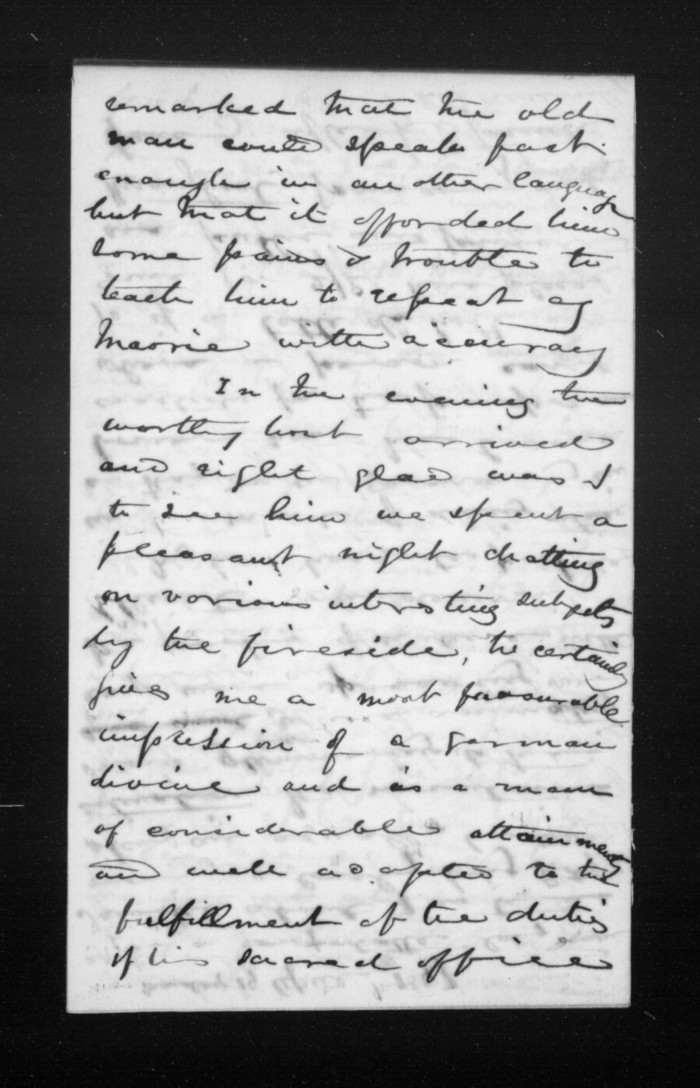 remarked that the old
man could speak fast
enough in another language
but that it afforded him
some pains & trouble to
teach him to repeat
Maorie with accuracy
In the evening the
worthy host arrived
and right glad was I
to see him we spent a
pleasant night chatting
on various interesting subjects
by the fireside, he certainly
gives me a most favourable
impression of a German
divine and is a man
of considerable attainments
and well adapted to the
fulfillment of the duties
of his sacred office